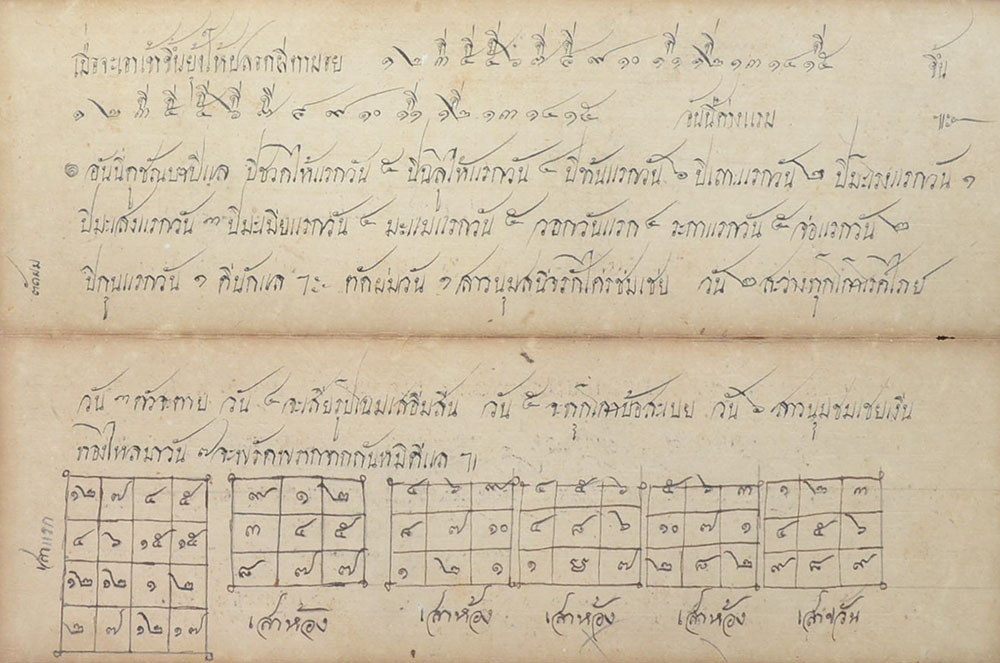 เมื่อจะเอาเข้าขึ้นยุ้งให้ปลอกสี่ตามรอย ๑ ๒ ๓ ๔ ๕ ๖ ๗ ๘ ๙ ๑๐ ๑๑ ๑๒ ๑๓ ๑๔ ๑๕ ขึ้น
๑ ๒ ๓ ๔ ๕ ๖ ๗ ๘ ๙ ๑๐ ๑๑ ๑๒ ๑๓ ๑๔ ๑๕ อันนี้ค่างแรม ฯะ
๏ อันนี้ แล ปีชวดให้แรกวัน ๕ ปีฉลูให้แรกวัน ๔ แรกวัน ๖ ปีเถาะแรกวัน ๒ ปีมะโรงแรกวัน ๑
ปีมะเสงแรกวัน ๓ ปีมะเมียแรกวัน ๔ มะแมแรกวัน ๕ วอกวันแรก ๔ ระกาแรกวัน ๕ จอแรกวัน ๒
ปีกุนแรกวัน ๑ ดีนักแล ฯะ ตัดผมวัน ๑ สาวนุมสนิจรักไคร่ชมเชย วัน ๒ สวางทุกโศกโรคไภย
วัน ๓ ตัวจะตาย วัน ๔ จะเสียรูปโฉมเสื่อมสีน วัน ๕ จะถูก วัน ๖ สาวนุมชมเชยเงิน
ทองไหลมาวัน ๗ จะพรัดพรากจากกันหมิดีแล ฯ
๑๒ ๗ ๔ ๕
๔ ๖ ๑๕ ๑๕
๑๒ ๑๒ ๑ ๒
๒ ๗ ๑๒ ๑๗
เสาแรก
๗ ๑ ๒
๓ ๔ ๕
๘ ๗ ๗
เสาห้อง
๕ ๖ ๙
๘ ๗ ๑๐
๑ ๒ ๑
เสาห้อง
๔ ๕ ๖
๔ ๘ ๖
๑ ๗
เสาห้อง
๕ ๖ ๓
๑๐ ๗ ๑
๒ ๘ ๒
เสาห้อง
๑ ๒ ๓
๔ ๕ ๖
๗ ๘ ๙
เสาขวัน